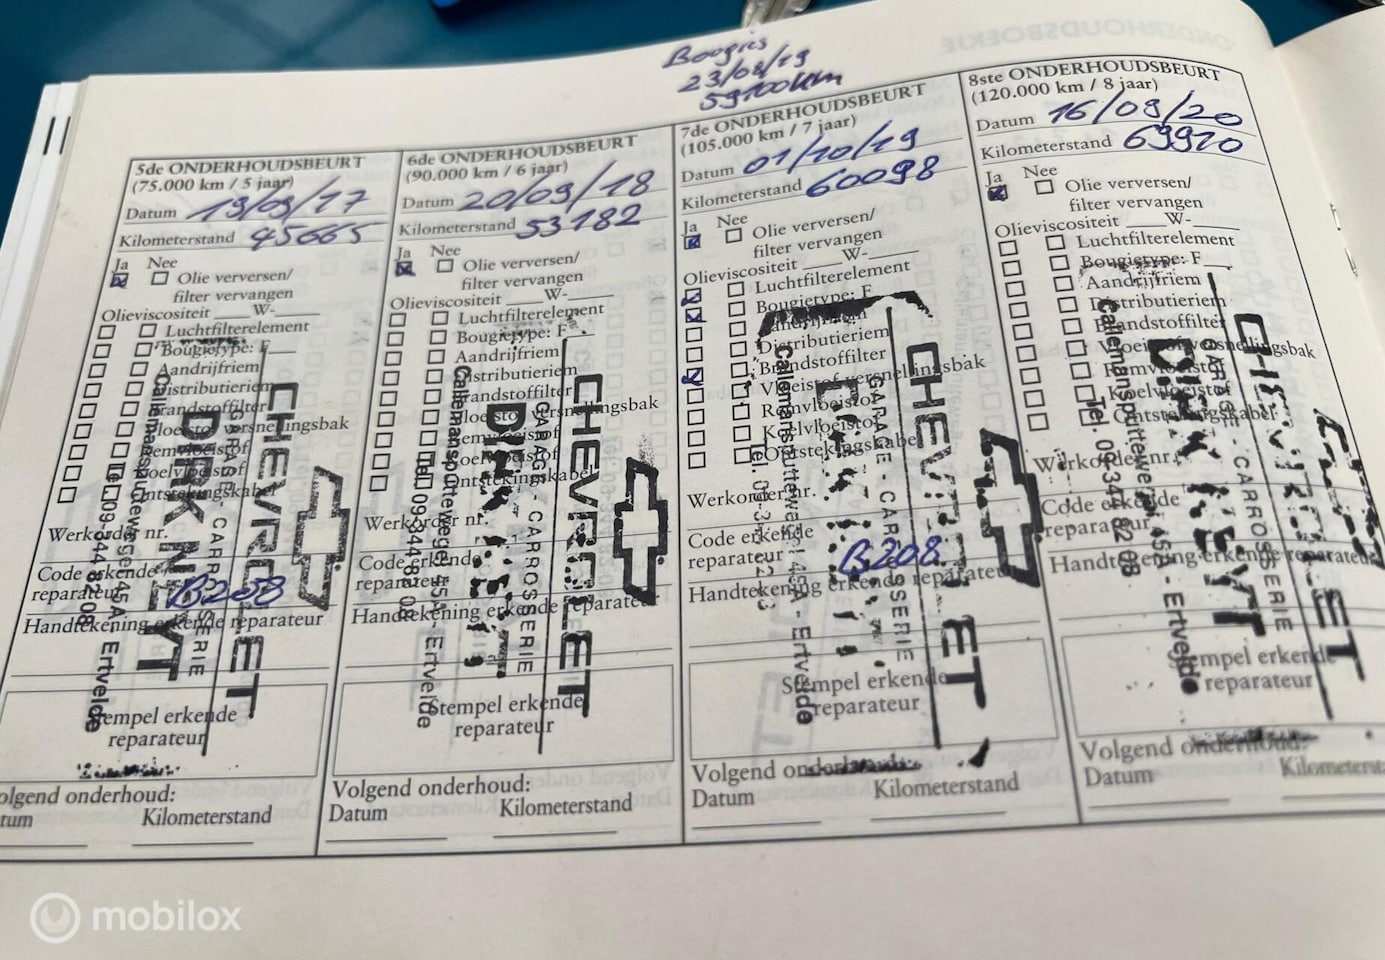 Boogies
23/08/19
59100km
5de ONDERHOUDSBEURT
(75.000 km / 5 jaar)
Datum 19/09/17
Kilometerstand 45665
Ja Nee
Olie verversen/
filter vervangen
Olieviscositeit ____W-____
Luchtfilterelement
Bougietype: F___
Aandrijfriem
Distributieriem
Brandstoffilter
Vloeistof versnellingsbak
Remvloeistof
Koelvloeistof
Ontstekingskabel
Werkorder nr.
Code erkende
reparateur B208
Handtekening erkende reparateur
CHEVROLET
GARAGE - CARROSSERIE
DIRK NEYT
Callemansputtewege 45A - Ertvelde
Tel. 09-344 82 08
Stempel erkende
reparateur
Volgend onderhoud:
Datum Kilometerstand
6de ONDERHOUDSBEURT
(90.000 km / 6 jaar)
Datum 20/09/18
Kilometerstand 53182
Ja Nee
Olie verversen/
filter vervangen
Olieviscositeit ____W-____
Luchtfilterelement
Bougietype: F
Aandrijfriem
Distributieriem
Brandstoffilter
Vloeistof versnellingsbak
Remvloeistof
Koelvloeistof
Ontstekingskabel
Werkorder nr.
Code erkende
reparateur
Handtekening erkende reparateur
CHEVROLET
GARAGE - CARROSSERIE
Callemansputtewege 45A - Ertvelde
Tel. 09-344 82 08
Stempel erkende
reparateur
Volgend onderhoud:
Datum Kilometerstand
7de ONDERHOUDSBEURT
(105.000 km / 7 jaar)
Datum 01/10/19
Kilometerstand 60098
Ja Nee
Olie verversen/
filter vervangen
Olieviscositeit ____W-____
Luchtfilterelement
Bougietype: F
Aandrijfriem
Distributieriem
Brandstoffilter
Vloeistof versnellingsbak
Remvloeistof
Koelvloeistof
Ontstekingskabel
Werkorder nr.
Code erkende
reparateur B208
Handtekening erkende reparateur
CHEVROLET
GARAGE - CARROSSERIE
Ertvelde
Stempel erkende
reparateur
Volgend onderhoud:
Datum Kilometerstand
8ste ONDERHOUDSBEURT
(120.000 km / 8 jaar)
Datum 16/09/20
Kilometerstand 69920
Ja Nee
Olie verversen/
filter vervangen
Olieviscositeit ____W-____
Luchtfilterelement
Bougietype: F____
Aandrijfriem
Distributieriem
Brandstoffilter
Vloeistof versnellingsbak
Remvloeistof
Koelvloeistof
Ontstekingskabel
Werkorder nr.
Code erkende
reparateur
Handtekening erkende reparateur
GARAGE - CARROSSERIE
Callemansputtewege 45A - Ertvelde
Tel. 09-344 82 08
Stempel erkende
reparateur
Volgend onderhoud:
Datum
mobilox